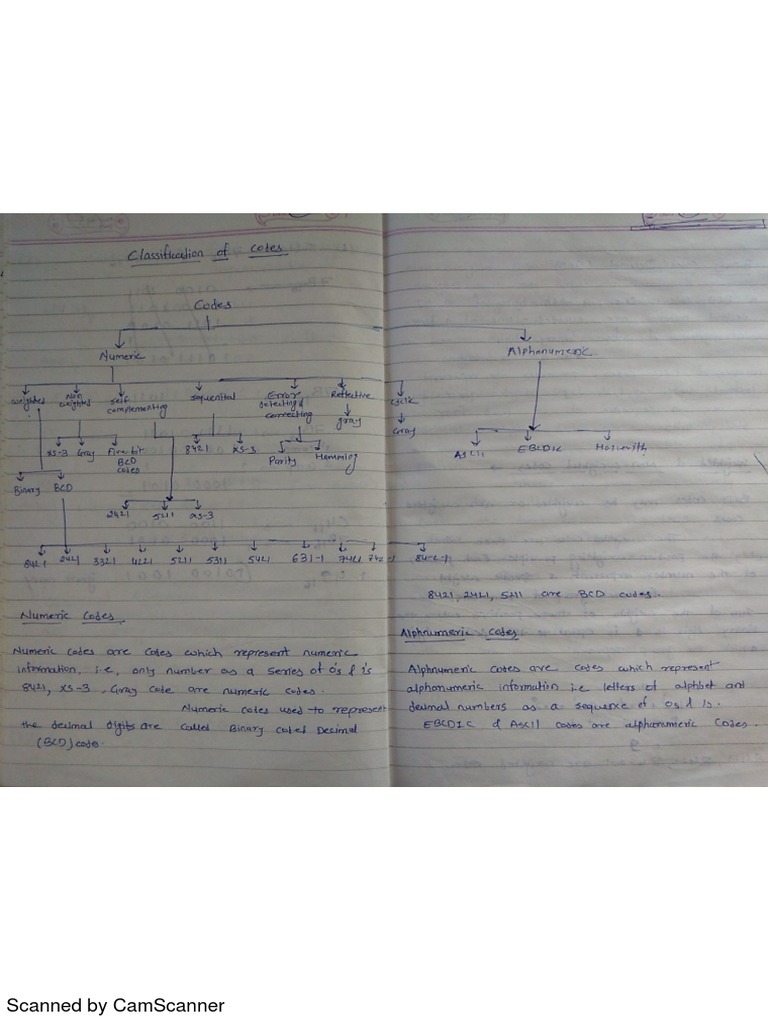 Classification of codes
Codes
Numeric
Alphanumeric
weighted
Non weighted
self complementing
sequential
Error detecting & correcting
Reflective
cyclic
gray
Gray
xs-3 Gray Five bit BCD codes
8421 xs-3
Parity Hamming
ASCII EBCDIC Hollerith
Binary BCD
2421 5211 xs-3
8421 2421 3321 4221 5211 5311 5421 631-1 7421 742-1 84-2-1
8421, 2421, 5211 are BCD codes.
Numeric Codes.
Numeric codes are codes which represent numeric
information, i.e, only number as a series of 0's & 1's
8421, XS-3, Gray code are numeric codes.
Numeric codes used to represent
the decimal digits are called Binary coded Decimal
(BCD) codes.
Alphnumeric codes.
Alphnumeric codes are codes which represent
alphanumeric information i.e letters of alphbet and
decimal numbers as a sequence of 0s & 1s.
EBCDIC & ASCII codes are alphanumeric codes.
Scanned by CamScanner